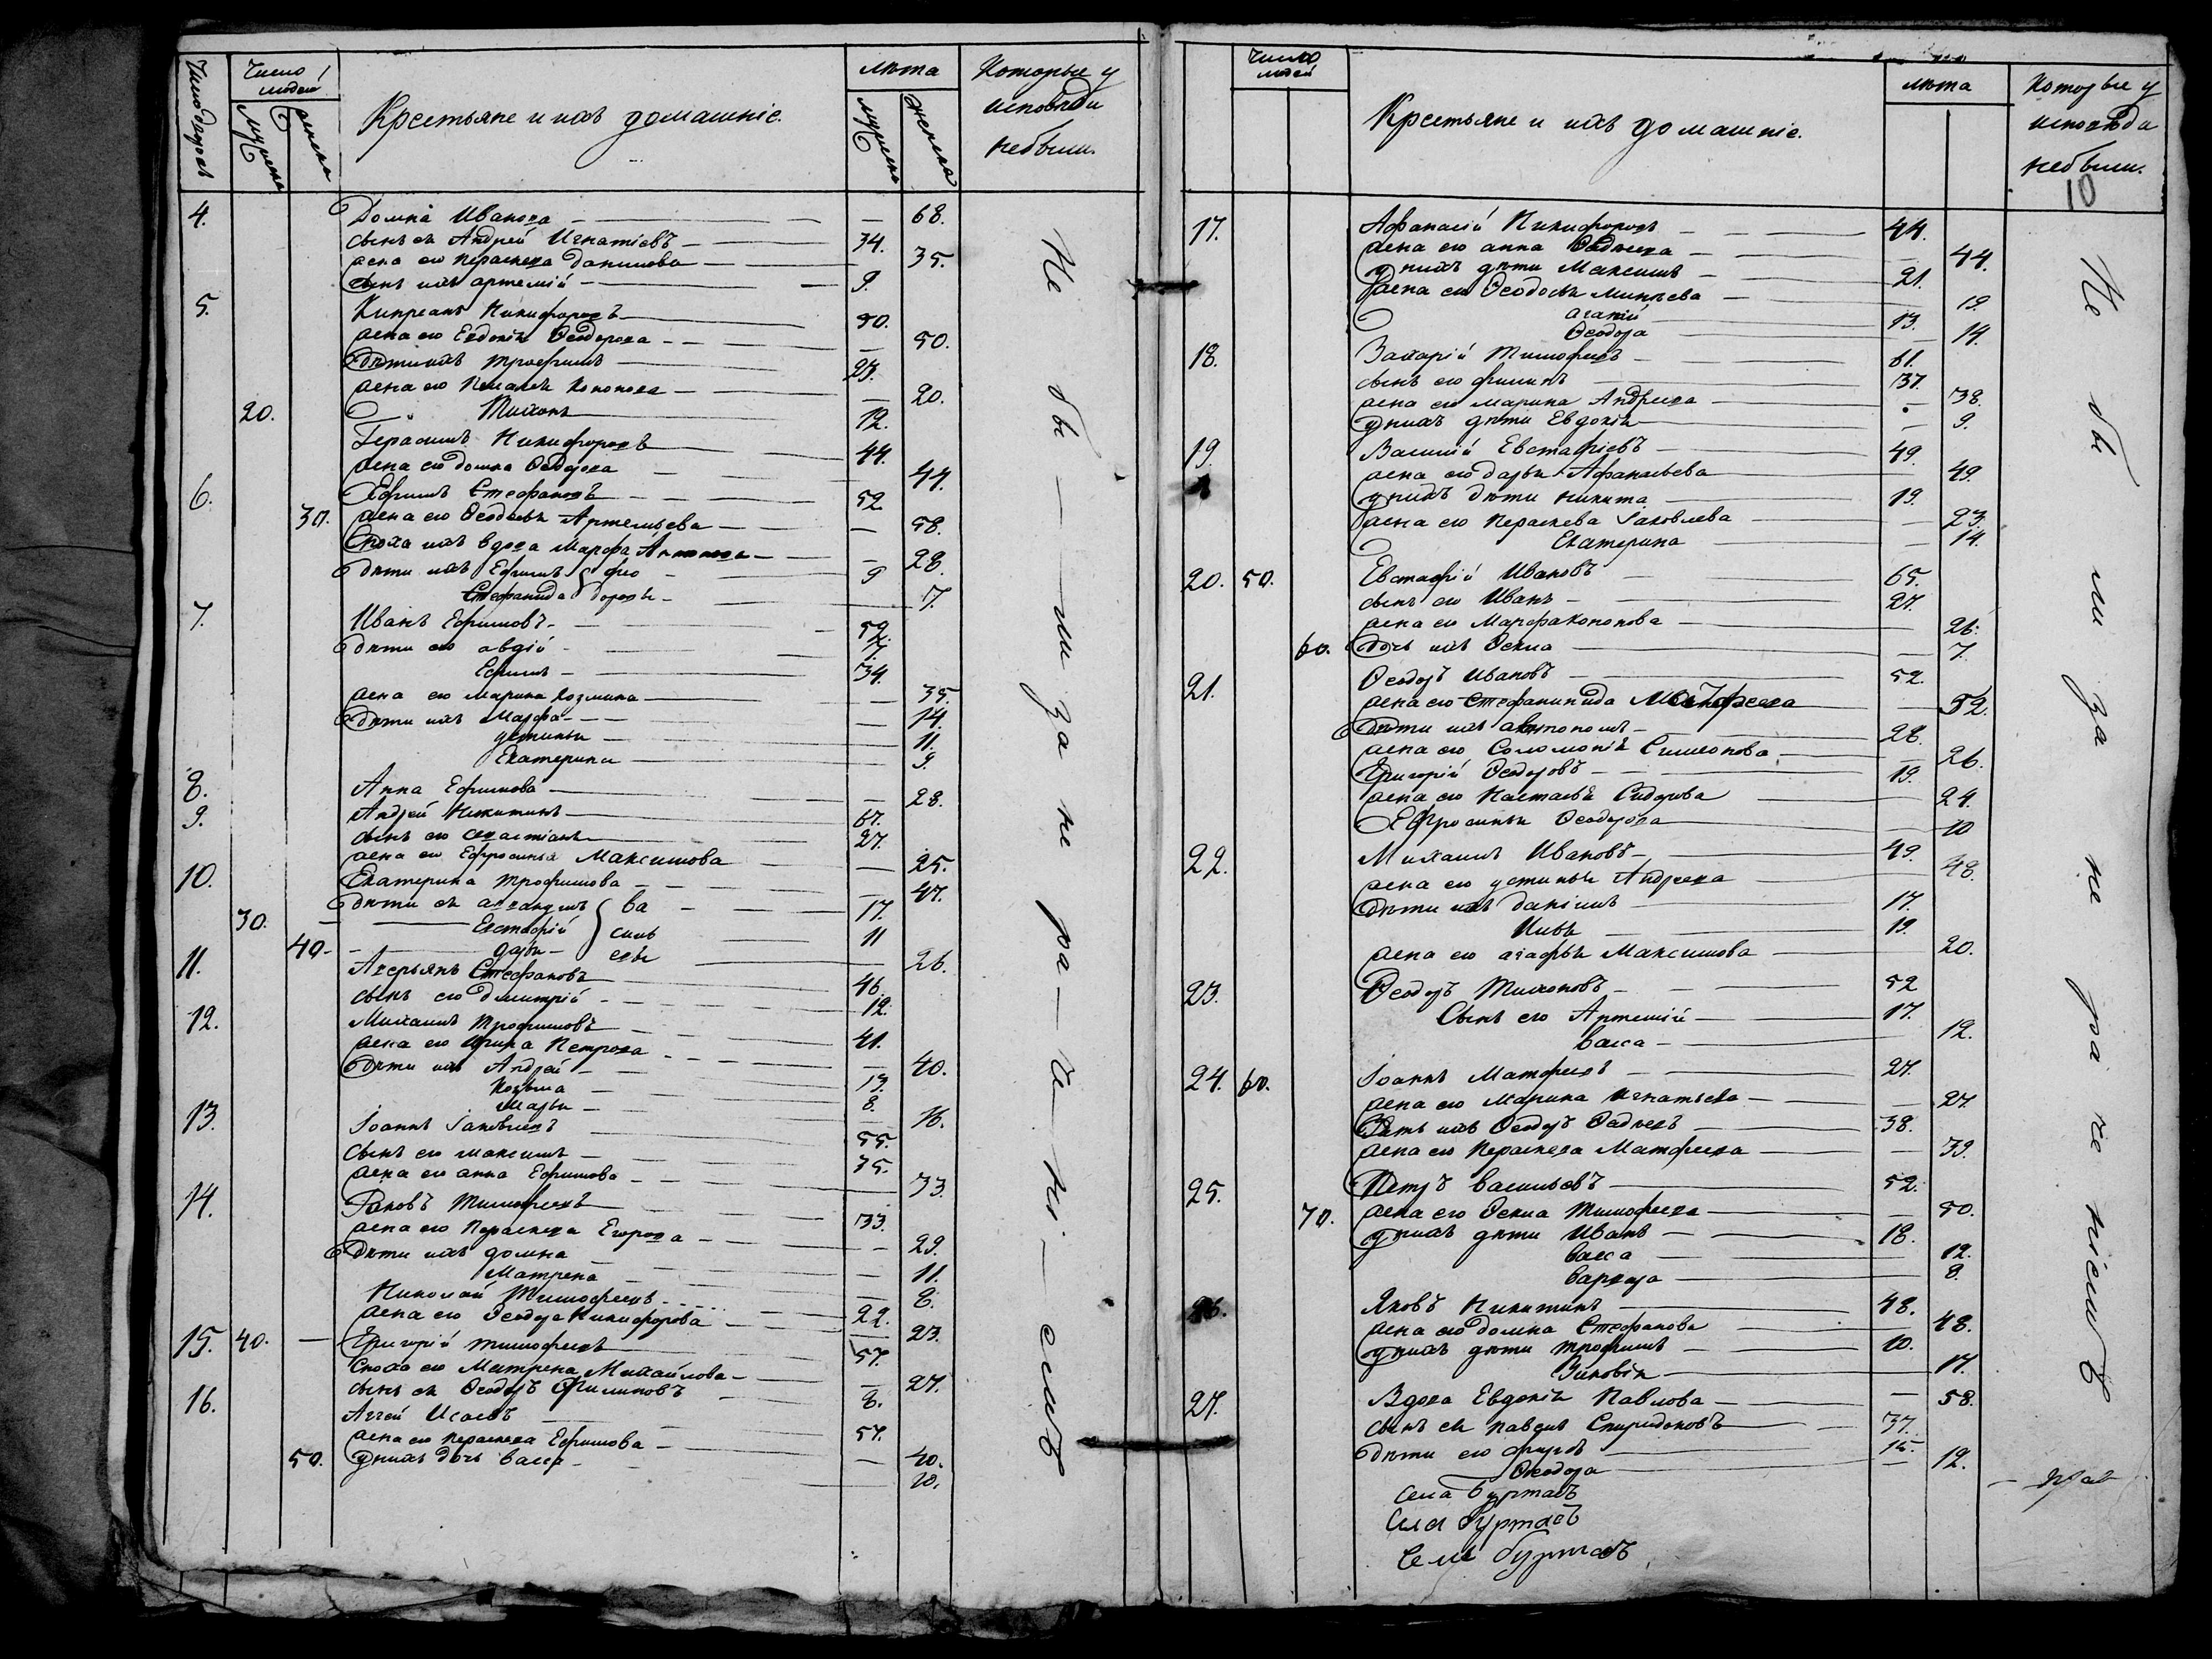 Число дворовъ
Число людей
мужеска
женска
Крестьяне и ихъ домашніе.
лѣта
мужеска
женска
Которые у
исповѣди
небыли.
4. Домна Иванова — 68.
сынъ ея Андрей Игнатіевъ — 34.
жена его Параскева Данилова — 35.
сынъ ихъ Артемій — 9.
5. Кипреанъ Никифоровъ 50.
жена его Евдокія Ѳеодорова — 50.
Дѣти ихъ Трофимъ
жена его Кононова — 20.
20. Тихонъ 12.
Герасимъ Никифоровъ 44.
жена его Домна Ѳедорова 44.
6. Ефимъ Стефановъ 52
30. жена его Ѳеодосья Артемьева — 58.
Сноха ихъ вдова Марфа — 28
дѣти ихъ Ефимъ 9
Стефанида 7.
7. Иванъ Ефимовъ 52.
Дѣти его Авдій 7.
Ефимъ 34.
жена его Марина Козмина — 35.
Дѣти ихъ Марфа — 14.
Устинья — 11.
Екатерина — 9.
8. Анна Ефимова — 28.
9. Андрей Никитинъ 67.
сынъ его Севастіанъ 27.
жена его Ефросинья Максимова — 25.
10. Екатерина Трофимова — 47.
Дѣти ея ва 17.
30. Евстафій силь 11
40. Дарья евы 26.
11. Аверьянъ Стефановъ 46.
сынъ его Димитрій 12.
12. Михаилъ Трофимовъ 41.
жена его Ирина Петрова — 40.
Дѣти ихъ Андрей 13.
Козьма 8.
Марья 16.
13. Іоаннъ Іаковлевъ 55.
Сынъ его Максимъ 35.
жена его Анна Ефимова 33.
14. Іаковъ Тимофеевъ 33.
жена его Параскева Егорова — 29.
Дѣти ихъ Домна — 11.
Матрена — 8.
Николай Тимофеевъ 22.
жена его Ѳеодора Никифорова — 23.
15. 40. Григорій Тимофеевъ 57.
Сноха его Матрена Михайлова — 27.
сынъ ея Ѳеодоръ Филиповъ 8.
16. Аггей Исаевъ 57.
жена его Параскева Ефимова — 40.
50. У нихъ дочь Васса 20.
Не бы — ли за не ра — че ні — емъ
Число
людей
Крестьяне и ихъ домашніе.
лѣта
Которые у
исповѣди
небыли.
10
17. Афанасій Никифоровъ 44.
жена его Анна Фадѣева — 44.
у нихъ дѣти Максимъ 21.
жена его Ѳеодосья Минѣева 19.
Агапій 13.
Ѳеодора — 14.
18. Захарій Тимофеевъ 61.
сынъ его Филипъ 37.
жена его Марина Андреева — 38.
у нихъ дѣти Евдокія — 9.
19. Василій Евстафіевъ 49.
жена его Дарья Афанасьева 49.
у нихъ дѣти Никита 19.
жена его Параскева Іаковлева — 23.
Екатерина — 14.
20. 50. Евстафій Ивановъ 65.
сынъ его Иванъ 27.
жена его Марфа Кононова 26.
60. Дочь ихъ Ѳекла — 7.
21. Ѳеодоръ Ивановъ 52.
жена его Стефанида — 52.
Дѣти ихъ Автономъ 28.
жена его Соломонія Симеонова — 26.
Григорій Ѳеодоровъ 19.
жена его Настасья Сидорова 24.
Ефросинья Ѳеодорова 10
22. Михаилъ Ивановъ 49.
жена его Устинья Андреева 48.
Дѣти ихъ Даніилъ 17.
Илья 19.
жена его Агафья Максимова 20.
23. Ѳеодоръ Тихоновъ 52
Сынъ его Артемій 17.
Васса — 12.
24. 60. Іоаннъ Матфеевъ 27.
жена его Марина Игнатьева — 27.
Зять ихъ Ѳеодоръ Фадѣевъ 38.
жена его Параскева Матфеева — 39.
25. Петръ Васильевъ 52.
70. жена его Ѳекла Тимофеева — 50.
у нихъ дѣти Иванъ 18.
Васса 12.
Варвара 8.
26. Яковъ Никитинъ 48.
жена его Домна Стефанова 48.
у нихъ дѣти Трофимъ 10.
Зиновія 17.
27. Вдова Евдокія Павлова — 58.
сынъ ея Павелъ Спиридоновъ 37.
Дѣти его 15.
Ѳеодора — 12.
села Буртасъ
села Буртасъ
села Буртасъ
Не бы ли за не ра че ніемъ